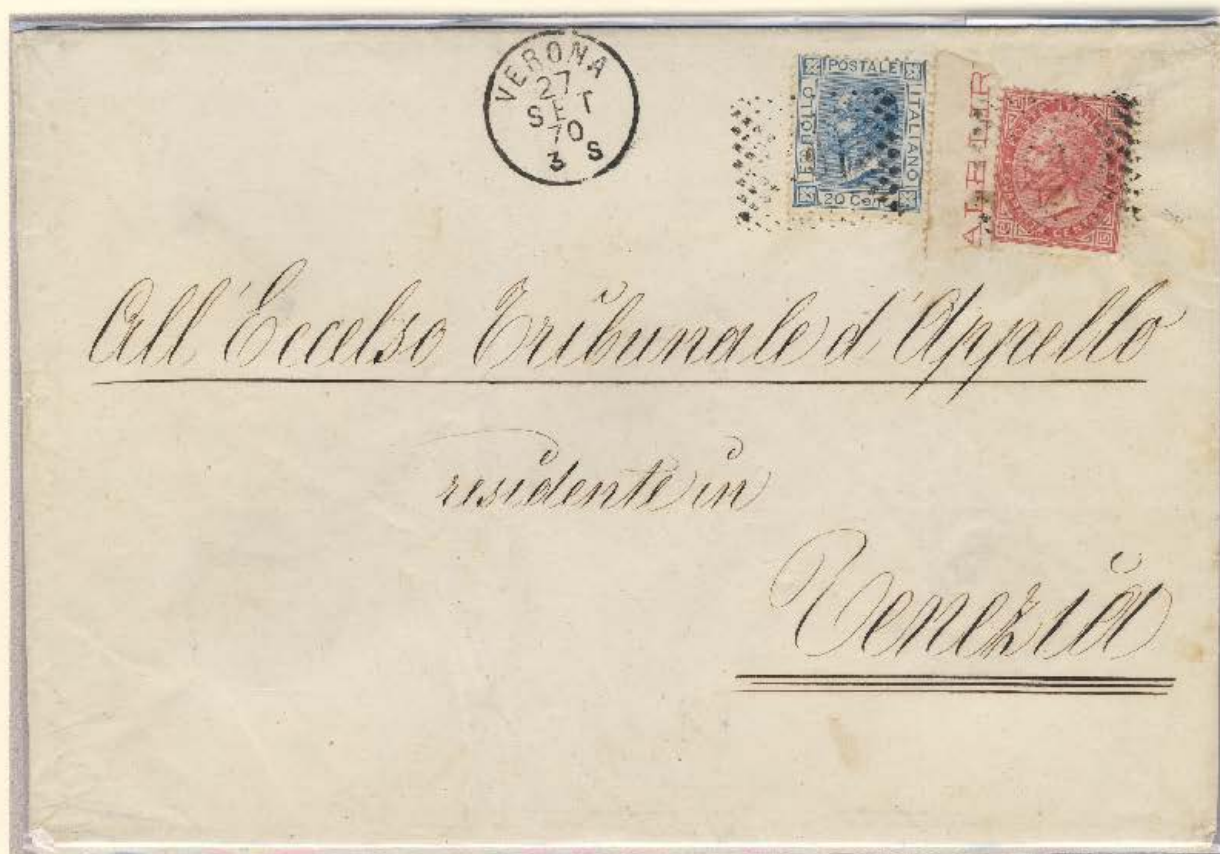 VERONA
27
SET
70
3 S
POSTALE
FBOLLO
ITALIANO
20 Cent
ALE IIR
All' Eccelso Tribunale d' Appello
residente in
Venezia